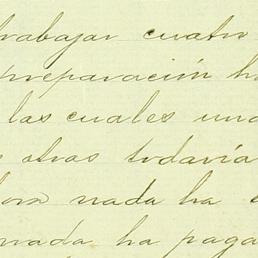 trabajar cuatro
preparación ha
las cuales una
otras todavía
nada ha
nada ha paga